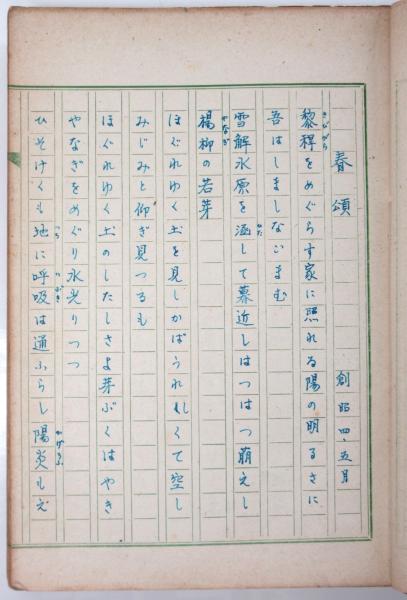 春頌 創昭四、五月
黎稈をめぐらす家に照れる陽の明るさに
吾はしましなごまむ
雪解水原を涵して暮近しはつはつ萌えし
楊柳の若芽
ほぐれゆく土を見しかばうれしくて空し
みじみと仰ぎ見つるも
ほぐれゆく土のしたしさよ芽ぶくはやき
やなぎをめぐり水光りつつ
ひそけくも地に呼吸は通ふらし陽炎もえ